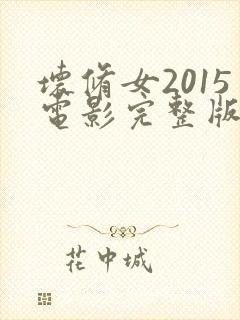 壞脩女2015
電影完整版
花中城